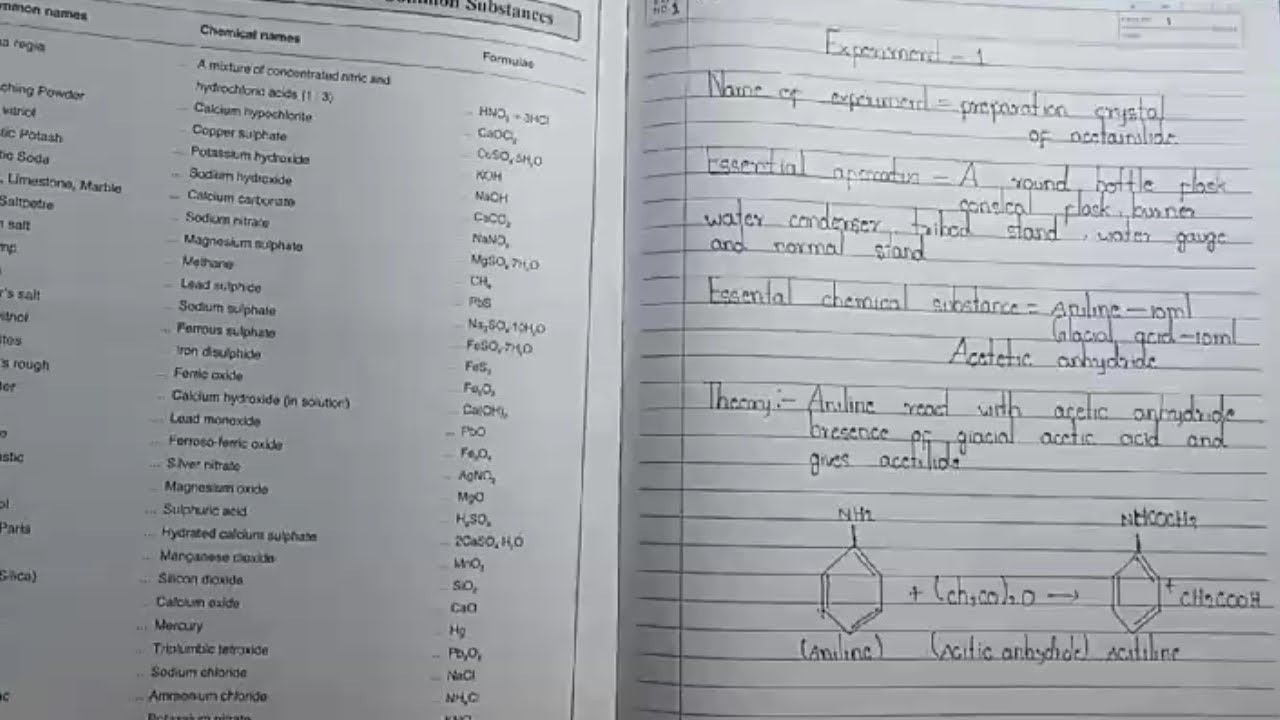 ommon names
Chemical names
Formulae
Common Substances
a regia
... A mixture of concentrated nitric and
hydrochloric acids (1 : 3)
... HNO₃ + 3HCl
ching Powder
... Calcium hypochlorite
... CaOCl₂
vitriol
... Copper sulphate
... CuSO₄·5H₂O
tic Potash
... Potassium hydroxide
... KOH
tic Soda
... Sodium hydroxide
... NaOH
, Limestone, Marble
... Calcium carbonate
... CaCO₃
Saltpetre
... Sodium nitrate
... NaNO₃
n salt
... Magnesium sulphate
... MgSO₄·7H₂O
mp
... Methane
... CH₄
... Lead sulphide
... PbS
r's salt
... Sodium sulphate
... Na₂SO₄·10H₂O
vitriol
... Ferrous sulphate
... FeSO₄·7H₂O
ites
... Iron disulphide
... FeS₂
's rough
... Ferric oxide
... Fe₂O₃
ter
... Calcium hydroxide (in solution)
... Ca(OH)₂
... Lead monoxide
... PbO
... Ferroso-ferric oxide
... Fe₃O₄
astic
... Silver nitrate
... AgNO₃
... Magnesium oxide
... MgO
ol
... Sulphuric acid
... H₂SO₄
Paris
... Hydrated calcium sulphate
... 2CaSO₄·H₂O
... Manganese dioxide
... MnO₂
Silica)
... Silicon dioxide
... SiO₂
... Calcium oxide
... CaO
... Mercury
... Hg
... Triplumbic tetroxide
... Pb₃O₄
... Sodium chloride
... NaCl
ac
... Ammonium chloride
... NH₄Cl
... Potassium nitrate
... KNO₃
NO. 1
1
Experiment - 1
Name of experiment = preparation crystal
of acetainilide
Essential aparadus - A round bottle flask
conical flask, burner
water condenser, tribod stand, water gauge
and normal stand
Essental chemical substance = Aniline - 10ml
Glacial acid - 10ml
Acetetic anhydride
Theory :- Aniline react with acetic anhydride
presence of glacial acetic acid and
gives acetilide
NH2
NHCOCH3
+ (ch3co)2O →
+ CH3COOH
(Aniline) (Acitic anhydide) Acitiline